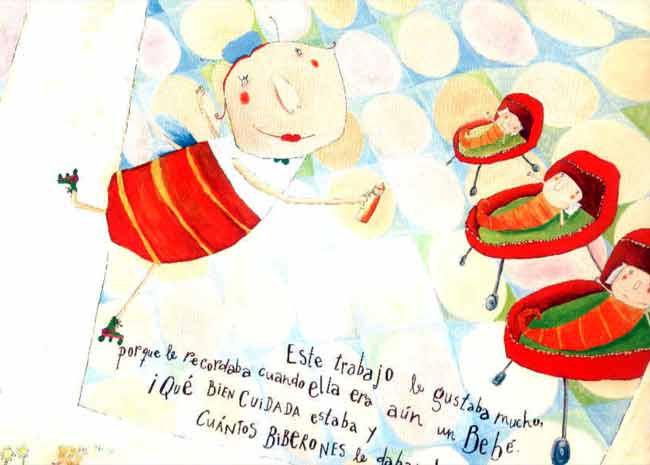 Este trabajo le gustaba mucho,
porque le recordaba cuando ella era aún un Bebé.
¡Qué BIEN CUIDADA estaba y
CUÁNTOS BIBERONES le daban